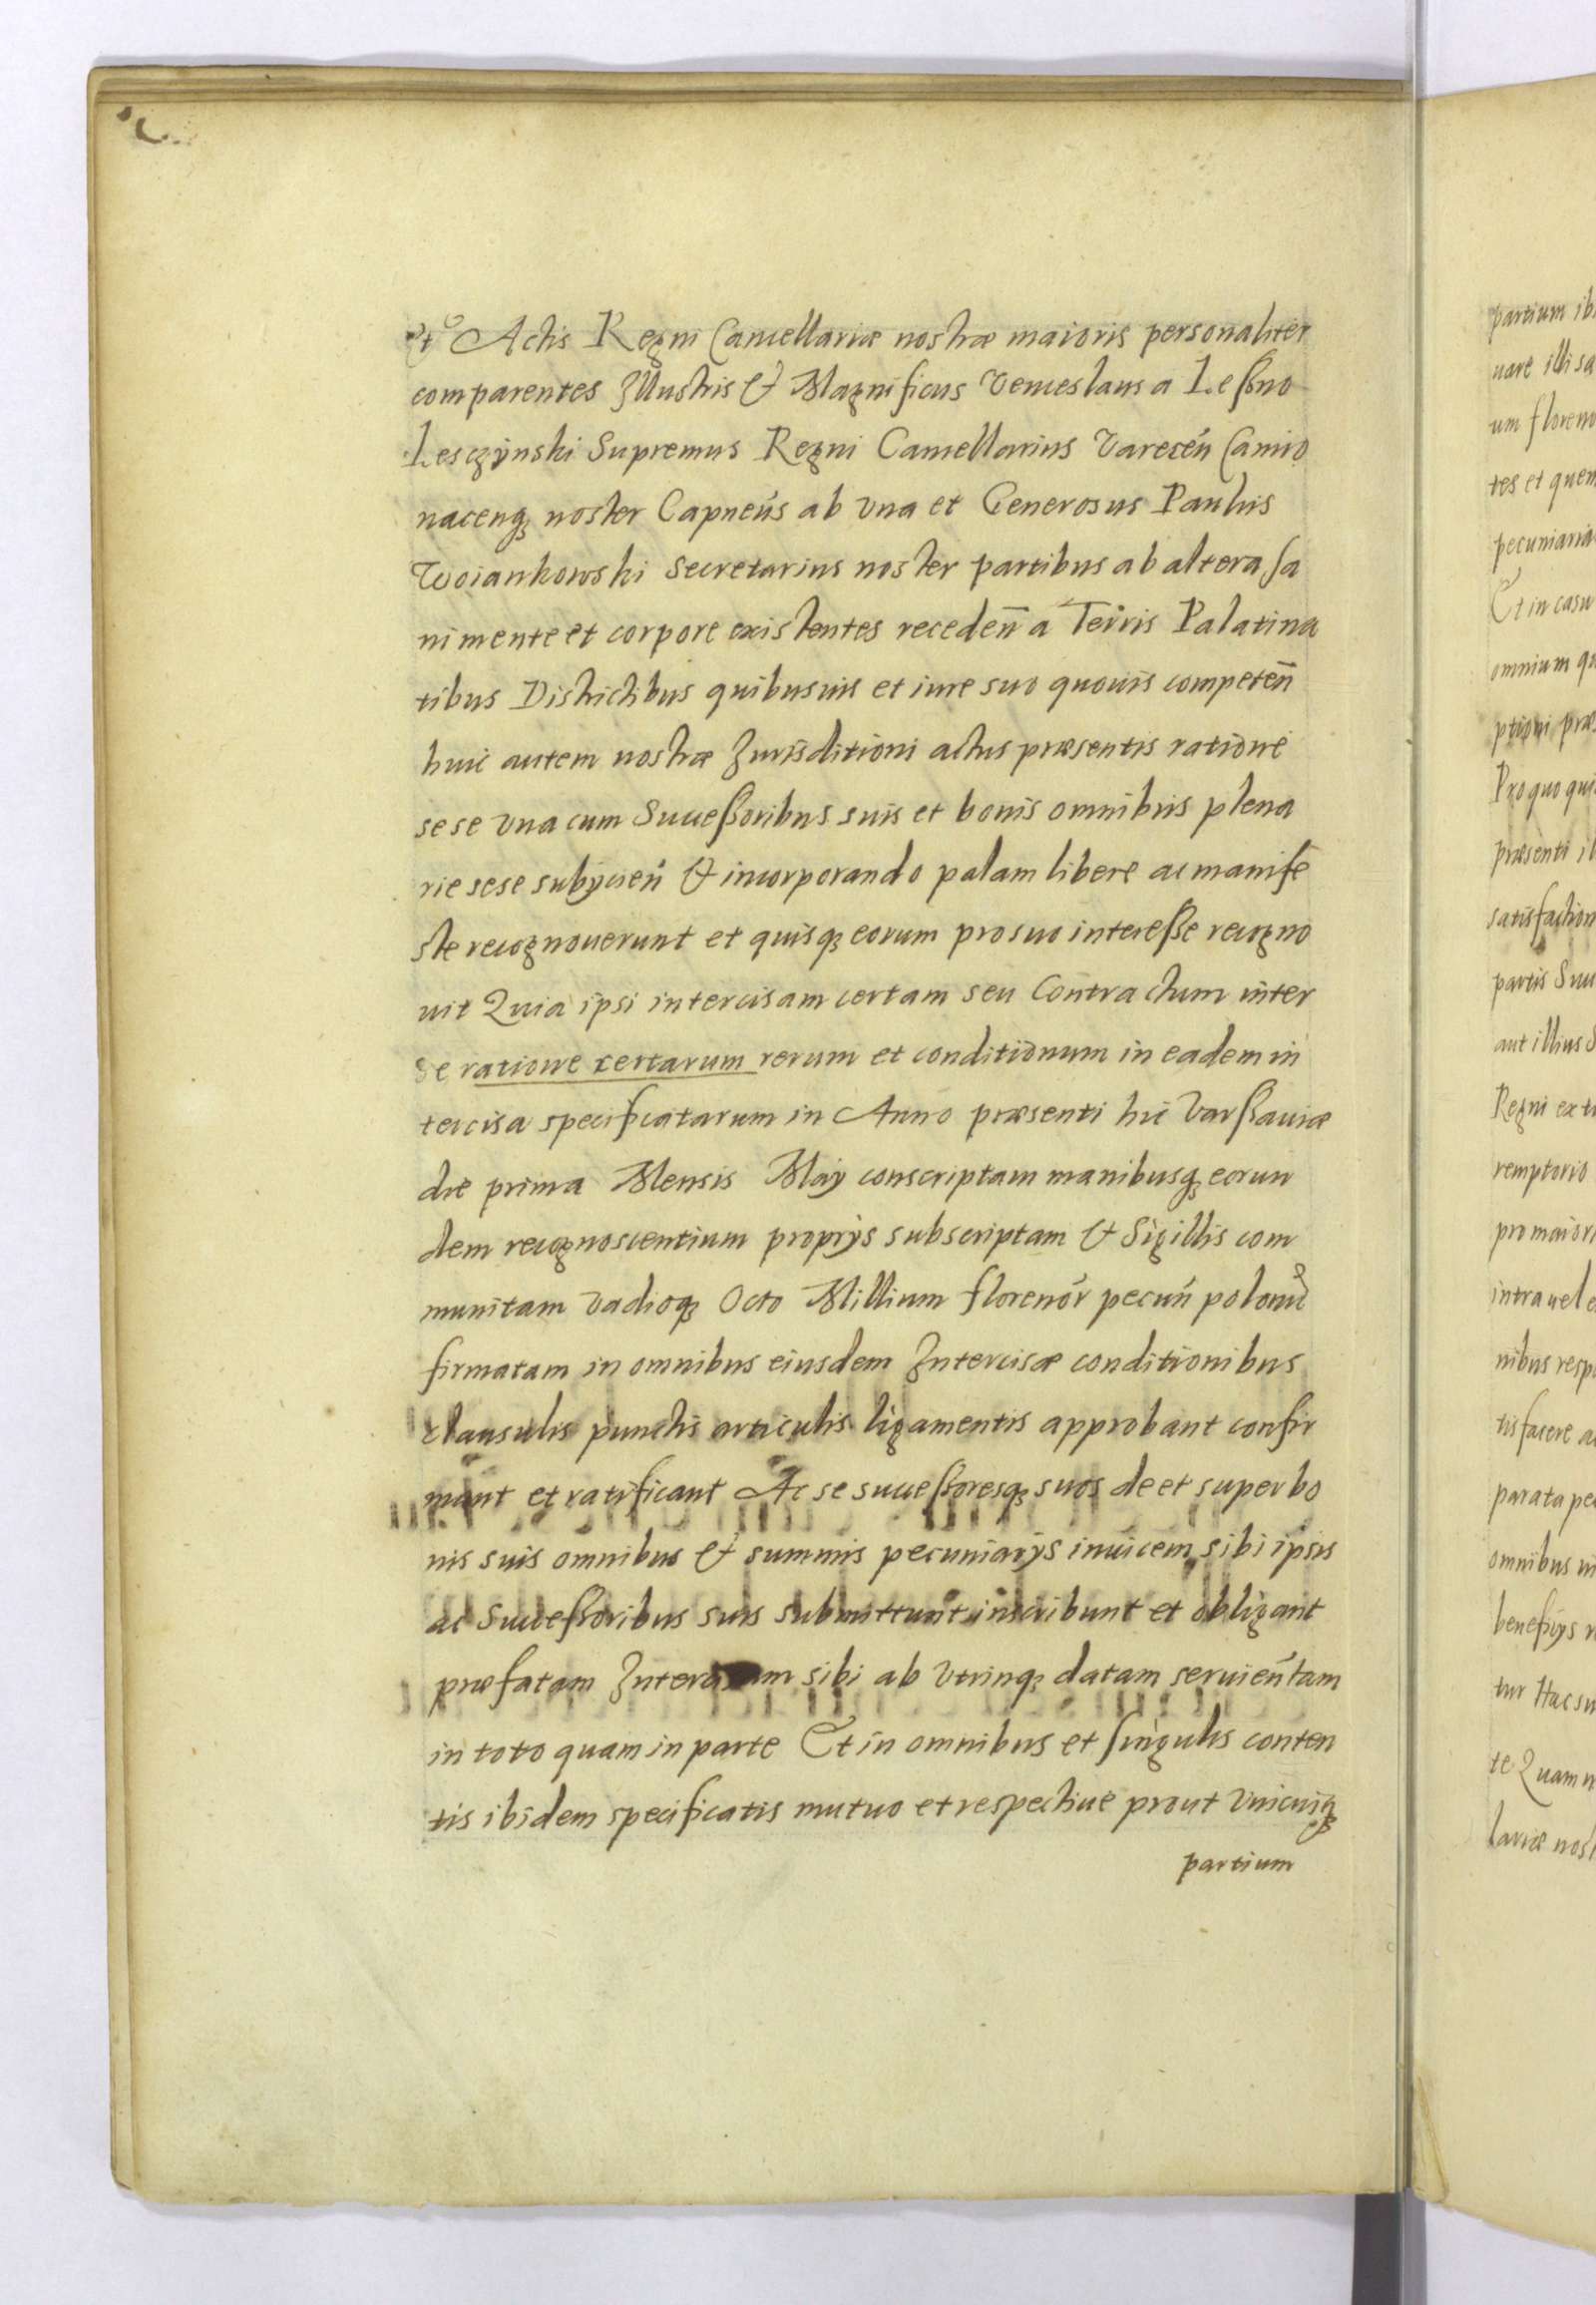 Et Actis Regni Cancellariæ nostræ maioris personaliter
comparentes Illustris & Magnificus Venceslaus a Leßno
Lesczÿnski Supremus Regni Cancellarius Varecen̄ Camio
nacenq₃ noster Capneūs ab vna et Generosus Paulus
Woiankowski Secretarius noster partibus ab altera sa
ni mente et corpore existentes receden̄ a Terris Palatina
tibus Districtibus quibusuis et iure suo quouis competen̄
huic autem nostræ Iurisditioni actus præsentis ratione
sese vna cum Succeßoribus suis et bonis omnibus plena
rie sese subÿcien̄ & incorporando palam libere ac manife
ste recognouerunt et quisq₃ eorum pro suo intereße recogno
uit Quia ipsi intercisam certam seu Contractum inter
se ratione certarum rerum et conditionum in eadem in
tercisa specificatarum in Anno præsenti hic Varßauiæ
die prima Mensis Maÿ conscriptam manibusq₃ eorun
dem recognoscentium proprÿs subscriptam & Sigillis com
munitam vadioq₃ Octo Millium florenor̄ pecun̄ polonic̄
firmatam in omnibus eiusdem Intercisæ conditionibus
clausulis punctis articulis ligamentis approbant confir
mant et ratificant Ac se succeßoresq₃ suos de et super bo
nis suis omnibus & summis pecuniarÿs inuicem sibi ipsis
ac Succeßoribus suis submittunt inscribunt et obligant
præfatam Intercisam sibi ab vtrinq₃ datam seruien̄ tam
in toto quam in parte Et in omnibus et singulis conten
tis ibidem specificatis mutuo et respectiue prout vnicuiq₃
partium